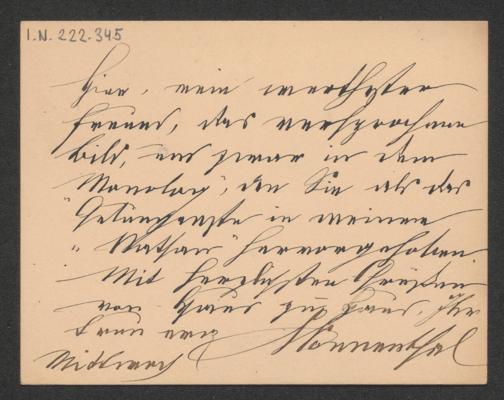 I.N. 222.345
Hier, mein werthester
Freund, das versprochene
Bild, und zwar in dem
"Monolog", den Sie als das
"Gelungenste in meinem
"Nathan" hervorgehoben.
Mit herzlichsten Grüßen
von Haus zu Haus, Ihr
treu erg
Sonnenthal
Mittwoch